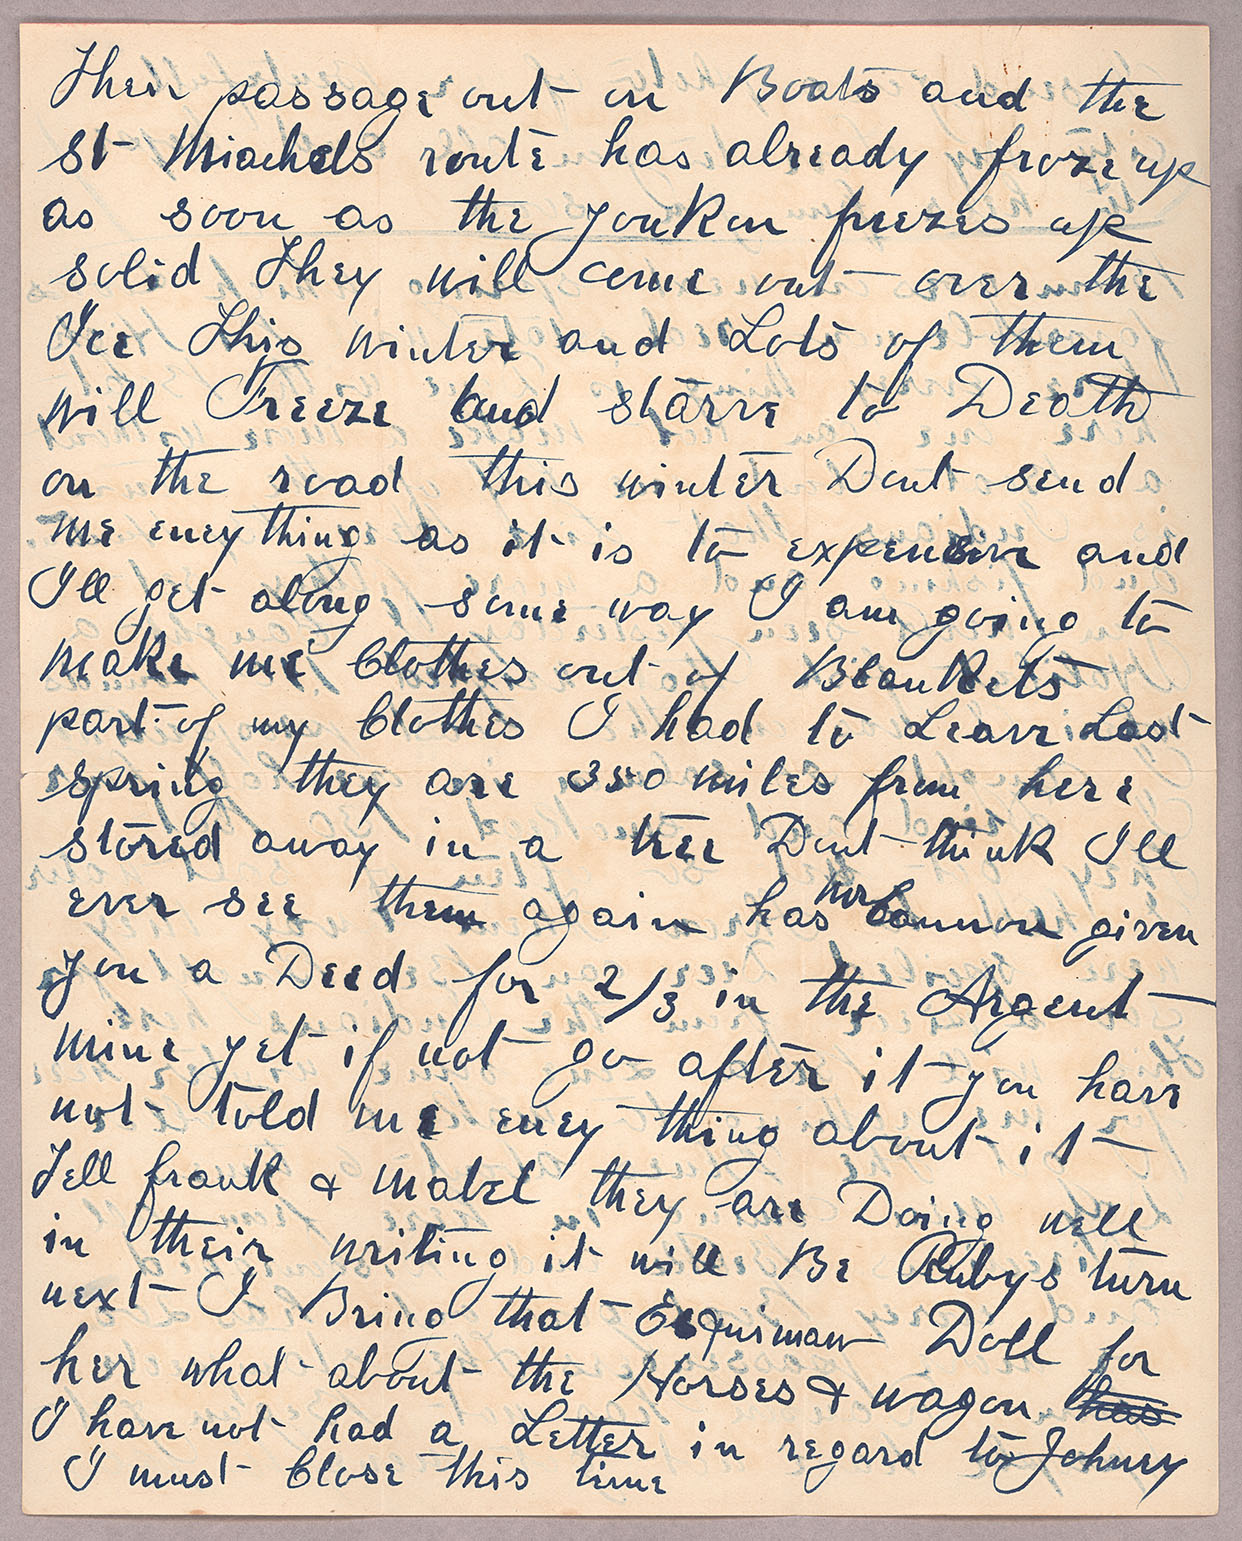 Their passage out on Boats and the
St Miachels route has already froze up
as soon as the youkon freezes up
solid They will come out over the
Ice This winter and Lots of them
will Freeze and starve to Death
on the road this winter Dont send
me eneything as it is to expensive and
I'll get along some way I am going to
make me Clothes out of Blankets
part of my Clothes I had to Leave Last
spring they are 350 miles from here
stored away in a tree Dont think I'll
ever see them again has Mr Cannon given
you a Deed for 2/3 in the Argent
mine yet if not go after it you have
not told me eney thing about it
Tell frank & mabel they are Doing well
in their writing it will Be Rubys turn
next I Bring that Esquimaw Doll for
her what about the Horses & wagon has
I have not had a Letter in regard to Johney
I must Close this time